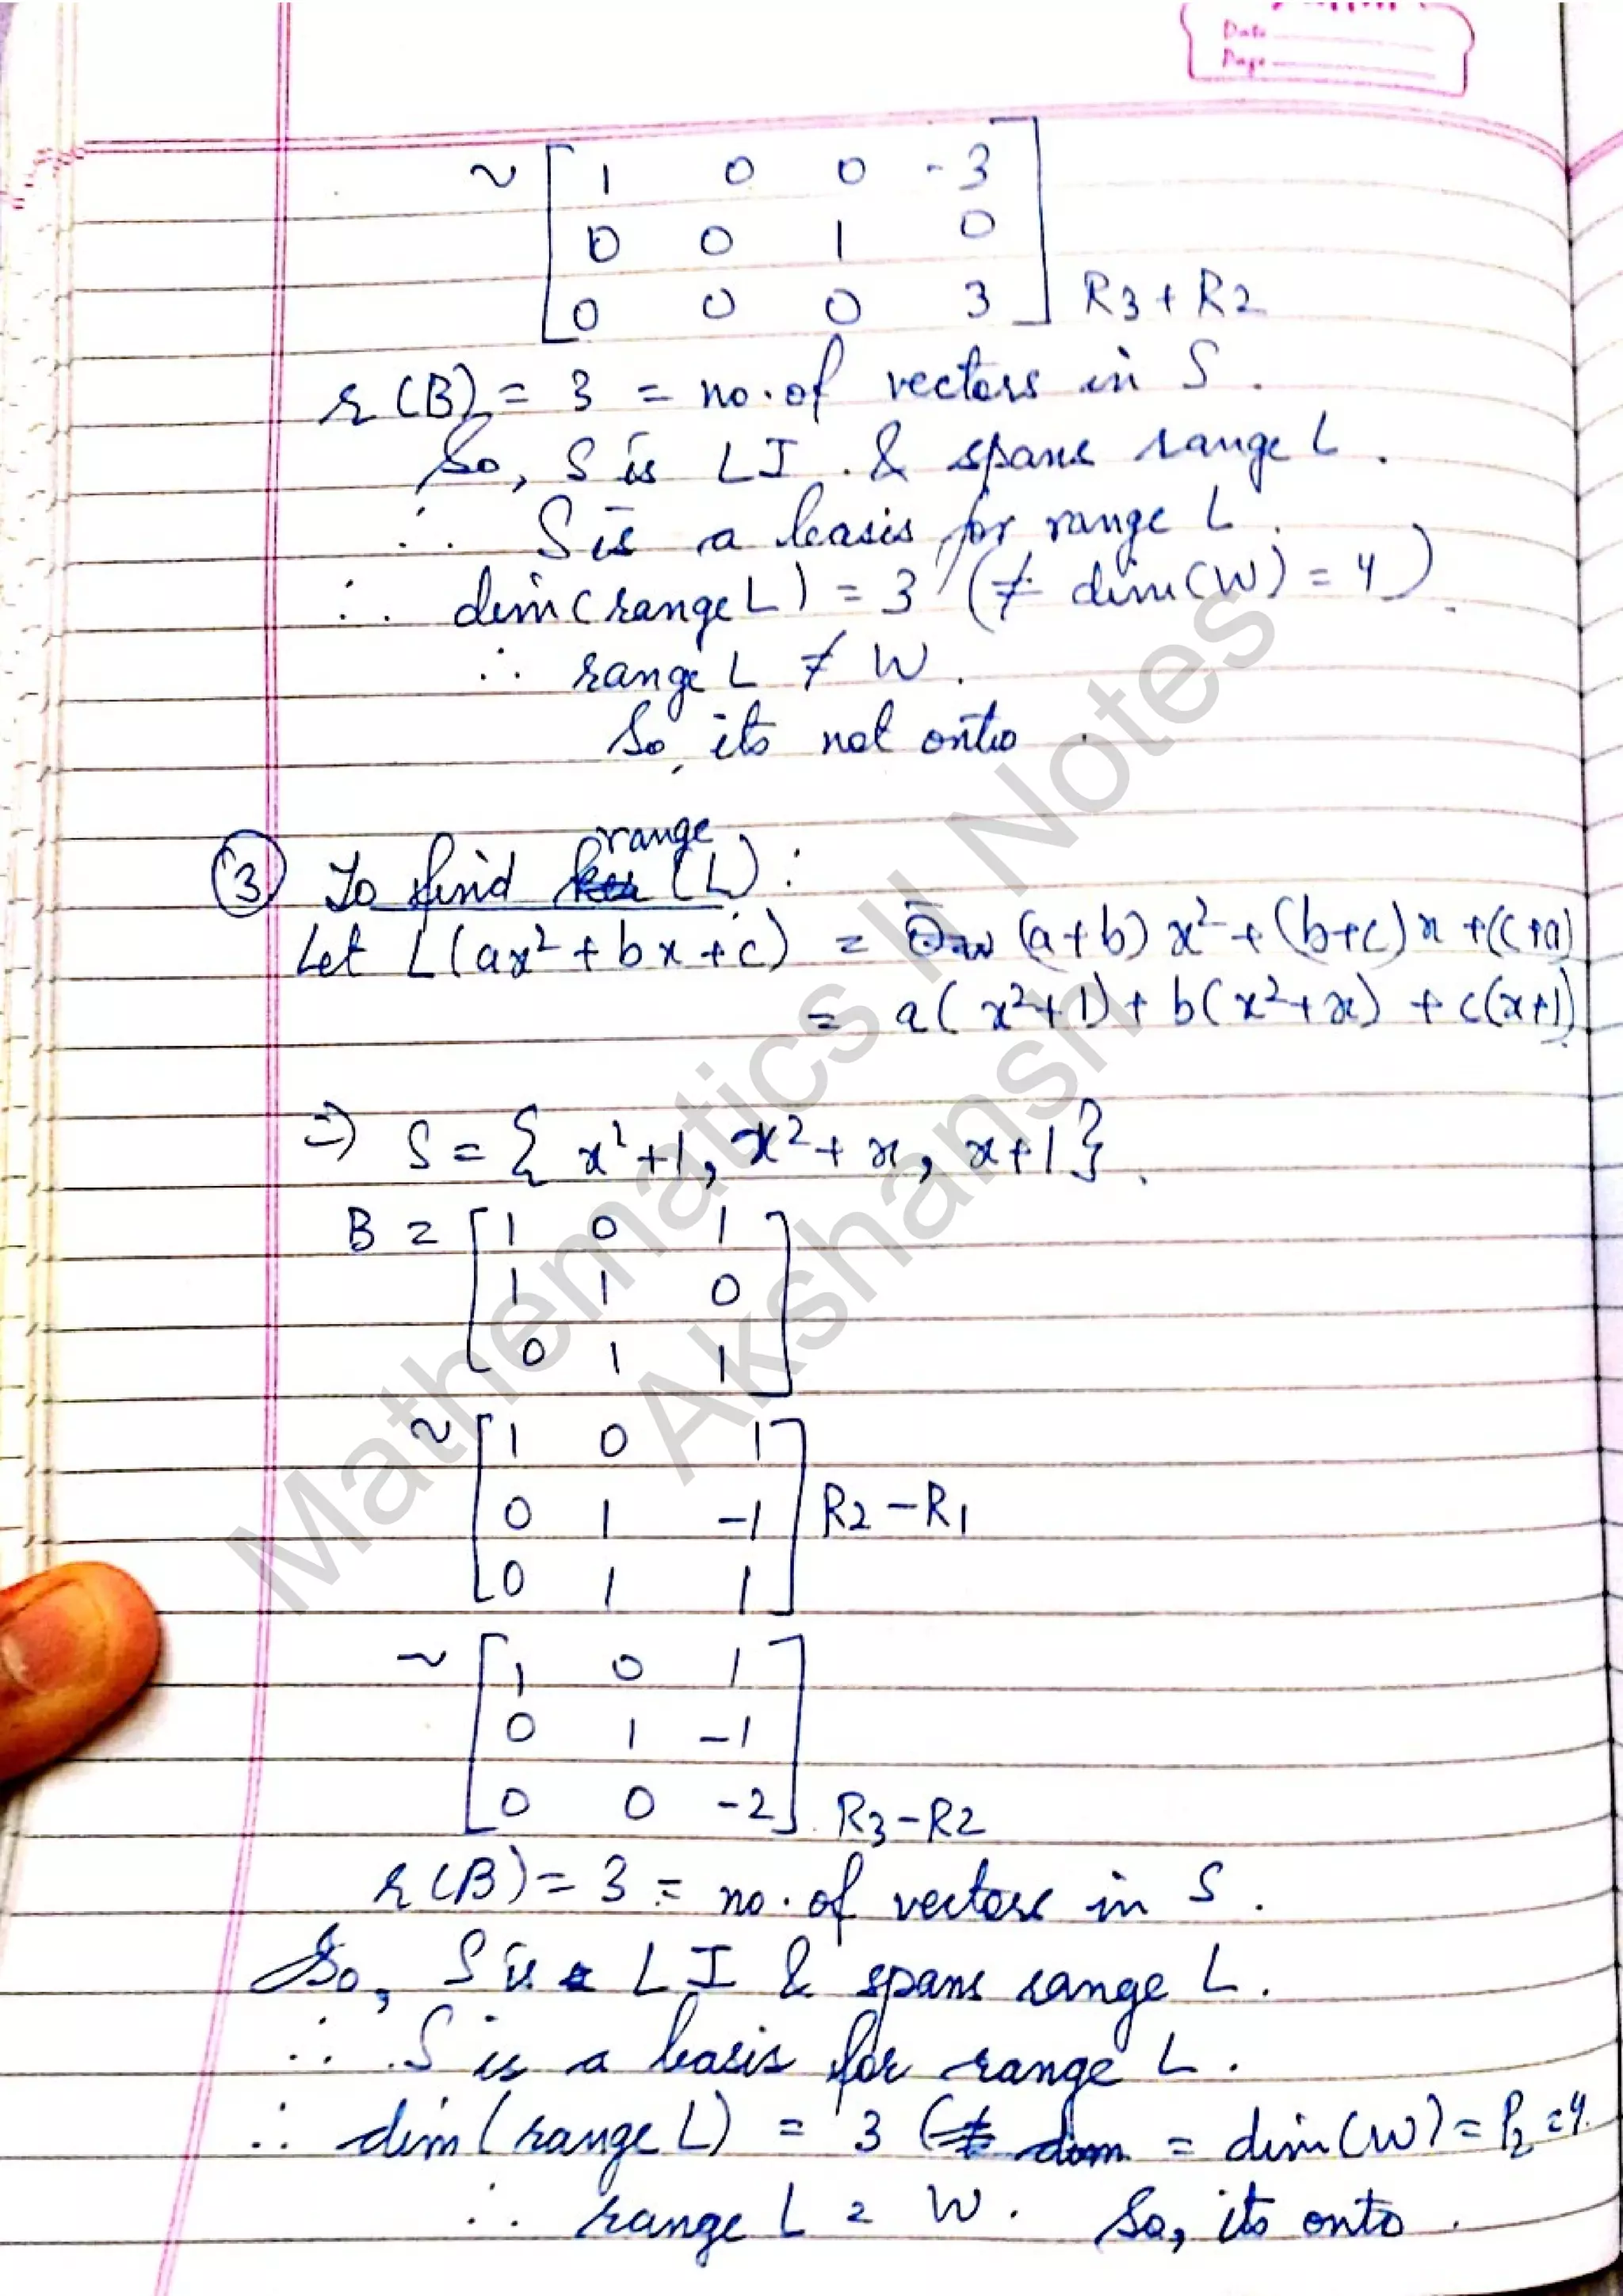 Date
Page
~ [ 1 0 0 -3
0 0 1 0
0 0 0 3 ] R3 + R2
r(B) = 3 = no. of vectors in S.
So, S is LI. & spans range L.
∴ S is a basis for range L.
∴ dim(range L) = 3 (≠ dim(W) = 4).
∴ range L ≠ W.
So, its not onto.
③ To find range (L):
Let L(ax²+bx+c) = (a+b)x²+(b+c)x+(c+a)
= a(x²+1)+b(x²+x)+c(x+1).
⇒ S = { x²+1, x²+x, x+1}.
B = [ 1 0 1
1 1 0
0 1 1 ]
~ [ 1 0 1
0 1 -1
0 1 1 ] R2 - R1
~ [ 1 0 1
0 1 -1
0 0 -2 ] R3-R2
r(B) = 3 = no. of vectors in S.
So, S is LI & spans range L.
∴ S is a basis for range L.
∴ dim(range L) = 3 ( = dim(W) = P₂ = 4.
∴ range L = W. So, its onto.
Mathematics II Notes
Akshansh